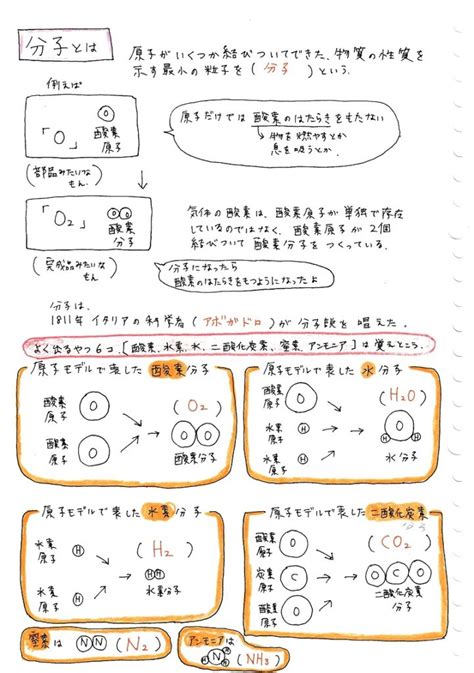 分子とは
原子がいくつか結びついてできた、物質の性質を
示す最小の粒子を(分子)という。
例えば
「O」 O 酸素
原子
(部品みたいな
もん。)
原子だけでは酸素のはたらきをもたない
↳ 物を燃やすとか
息を吸うとか。
「O₂」 OO 酸素
分子
(完成品みたいな
もん)
気体の酸素は、酸素原子が単独で存在
しているのではなく、酸素原子が2個
結びついて酸素分子をつくっている。
分子になったら
酸素のはたらきをもつようになったよ
分子は、
1811年イタリアの科学者(アボガドロ)が分子説を唱えた。
よく出るやつ6コ、[酸素、水素、水、二酸化炭素、窒素、アンモニア]は覚えどころ。
原子モデルで表した酸素分子
酸素
原子 O
(O₂)
酸素
原子 O
OO
酸素分子
原子モデルで表した水分子
酸素
原子 O
(H₂O)
水素
原子 H
H O H
水素
原子 H
水分子
原子モデルで表した水素分子
水素
原子 H
(H₂)
HH
水素
原子 H
水素分子
原子モデルで表した二酸化炭素
分子
酸素
原子 O
(CO₂)
炭素
原子 C
OCO
酸素
原子 O
二酸化炭素
分子
窒素は NN (N₂)
アンモニアは
H N H H (NH₃)